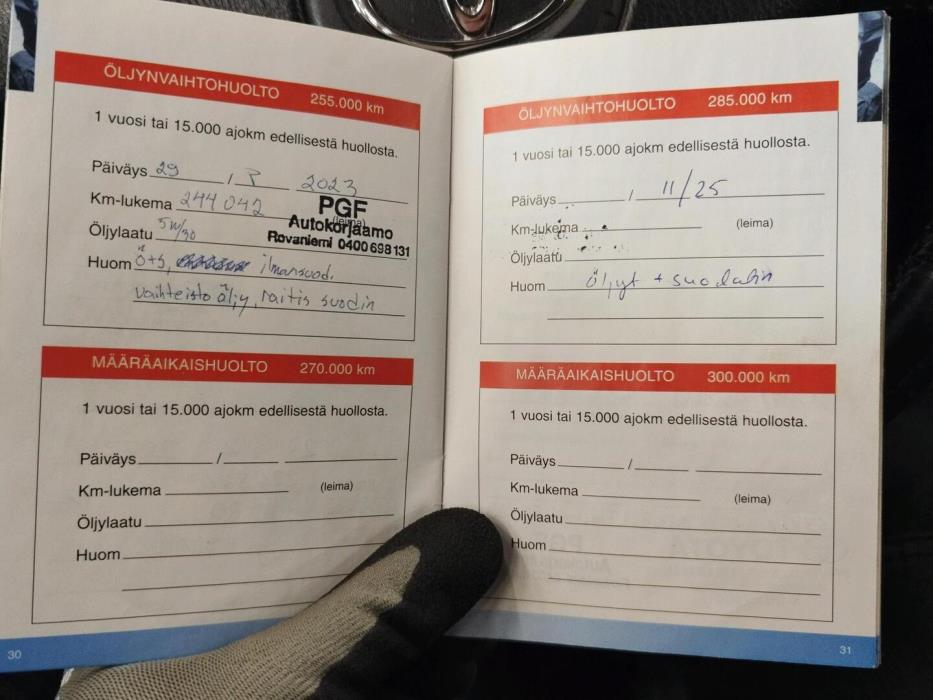 ÖLJYNVAIHTOHUOLTO 255.000 km
1 vuosi tai 15.000 ajokm edellisestä huollosta.
Päiväys 29 / 2023
Km-lukema 244 042 (leima)
PGF
Autokorjaamo
Rovaniemi 0400 698 131
Öljylaatu 5W/30
Huom Ö+S, ilmansuod.
vaihteisto öljy, raitis suodin
MÄÄRÄAIKAISHUOLTO 270.000 km
1 vuosi tai 15.000 ajokm edellisestä huollosta.
Päiväys /
Km-lukema (leima)
Öljylaatu
Huom
30
ÖLJYNVAIHTOHUOLTO 285.000 km
1 vuosi tai 15.000 ajokm edellisestä huollosta.
Päiväys / 11/25
Km-lukema (leima)
Öljylaatu
Huom öljyt + suodatin
MÄÄRÄAIKAISHUOLTO 300.000 km
1 vuosi tai 15.000 ajokm edellisestä huollosta.
Päiväys /
Km-lukema (leima)
Öljylaatu
Huom
31